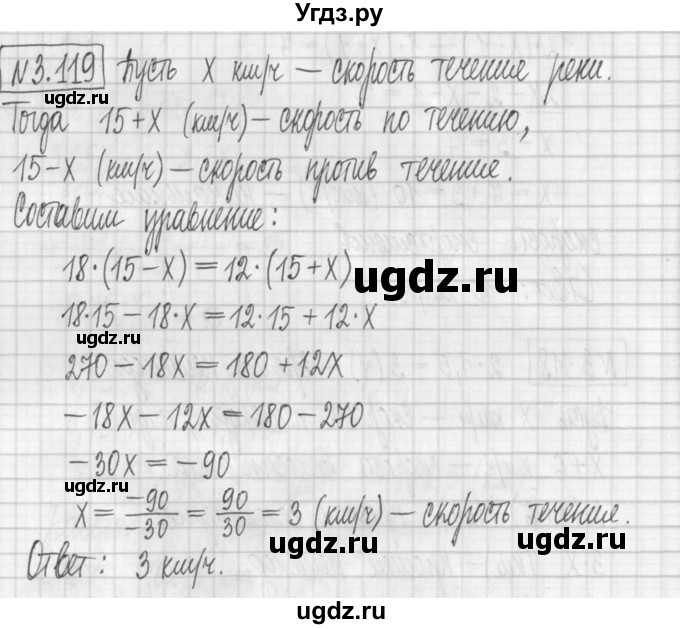 Угдз.ру
N3.119 Пусть х км/ч – скорость течение реки.
ugdz.ru
Тогда 15+х (км/ч) – скорость по течению,
15-х (км/ч) – скорость против течение.
Составим уравнение:
18·(15-х)=12·(15+х)
ugdz.ru
18·15-18·х=12·15+12·х
ugdz.ru
270-18х=180+12х
-18х-12х=180-270
-30х=-90
ugdz.ru
х=-90/-30=90/30=3 (км/ч) – скорость течение.
ugdz.ru
ugdz.ru
Ответ: 3 км/ч.
ugdz.ru